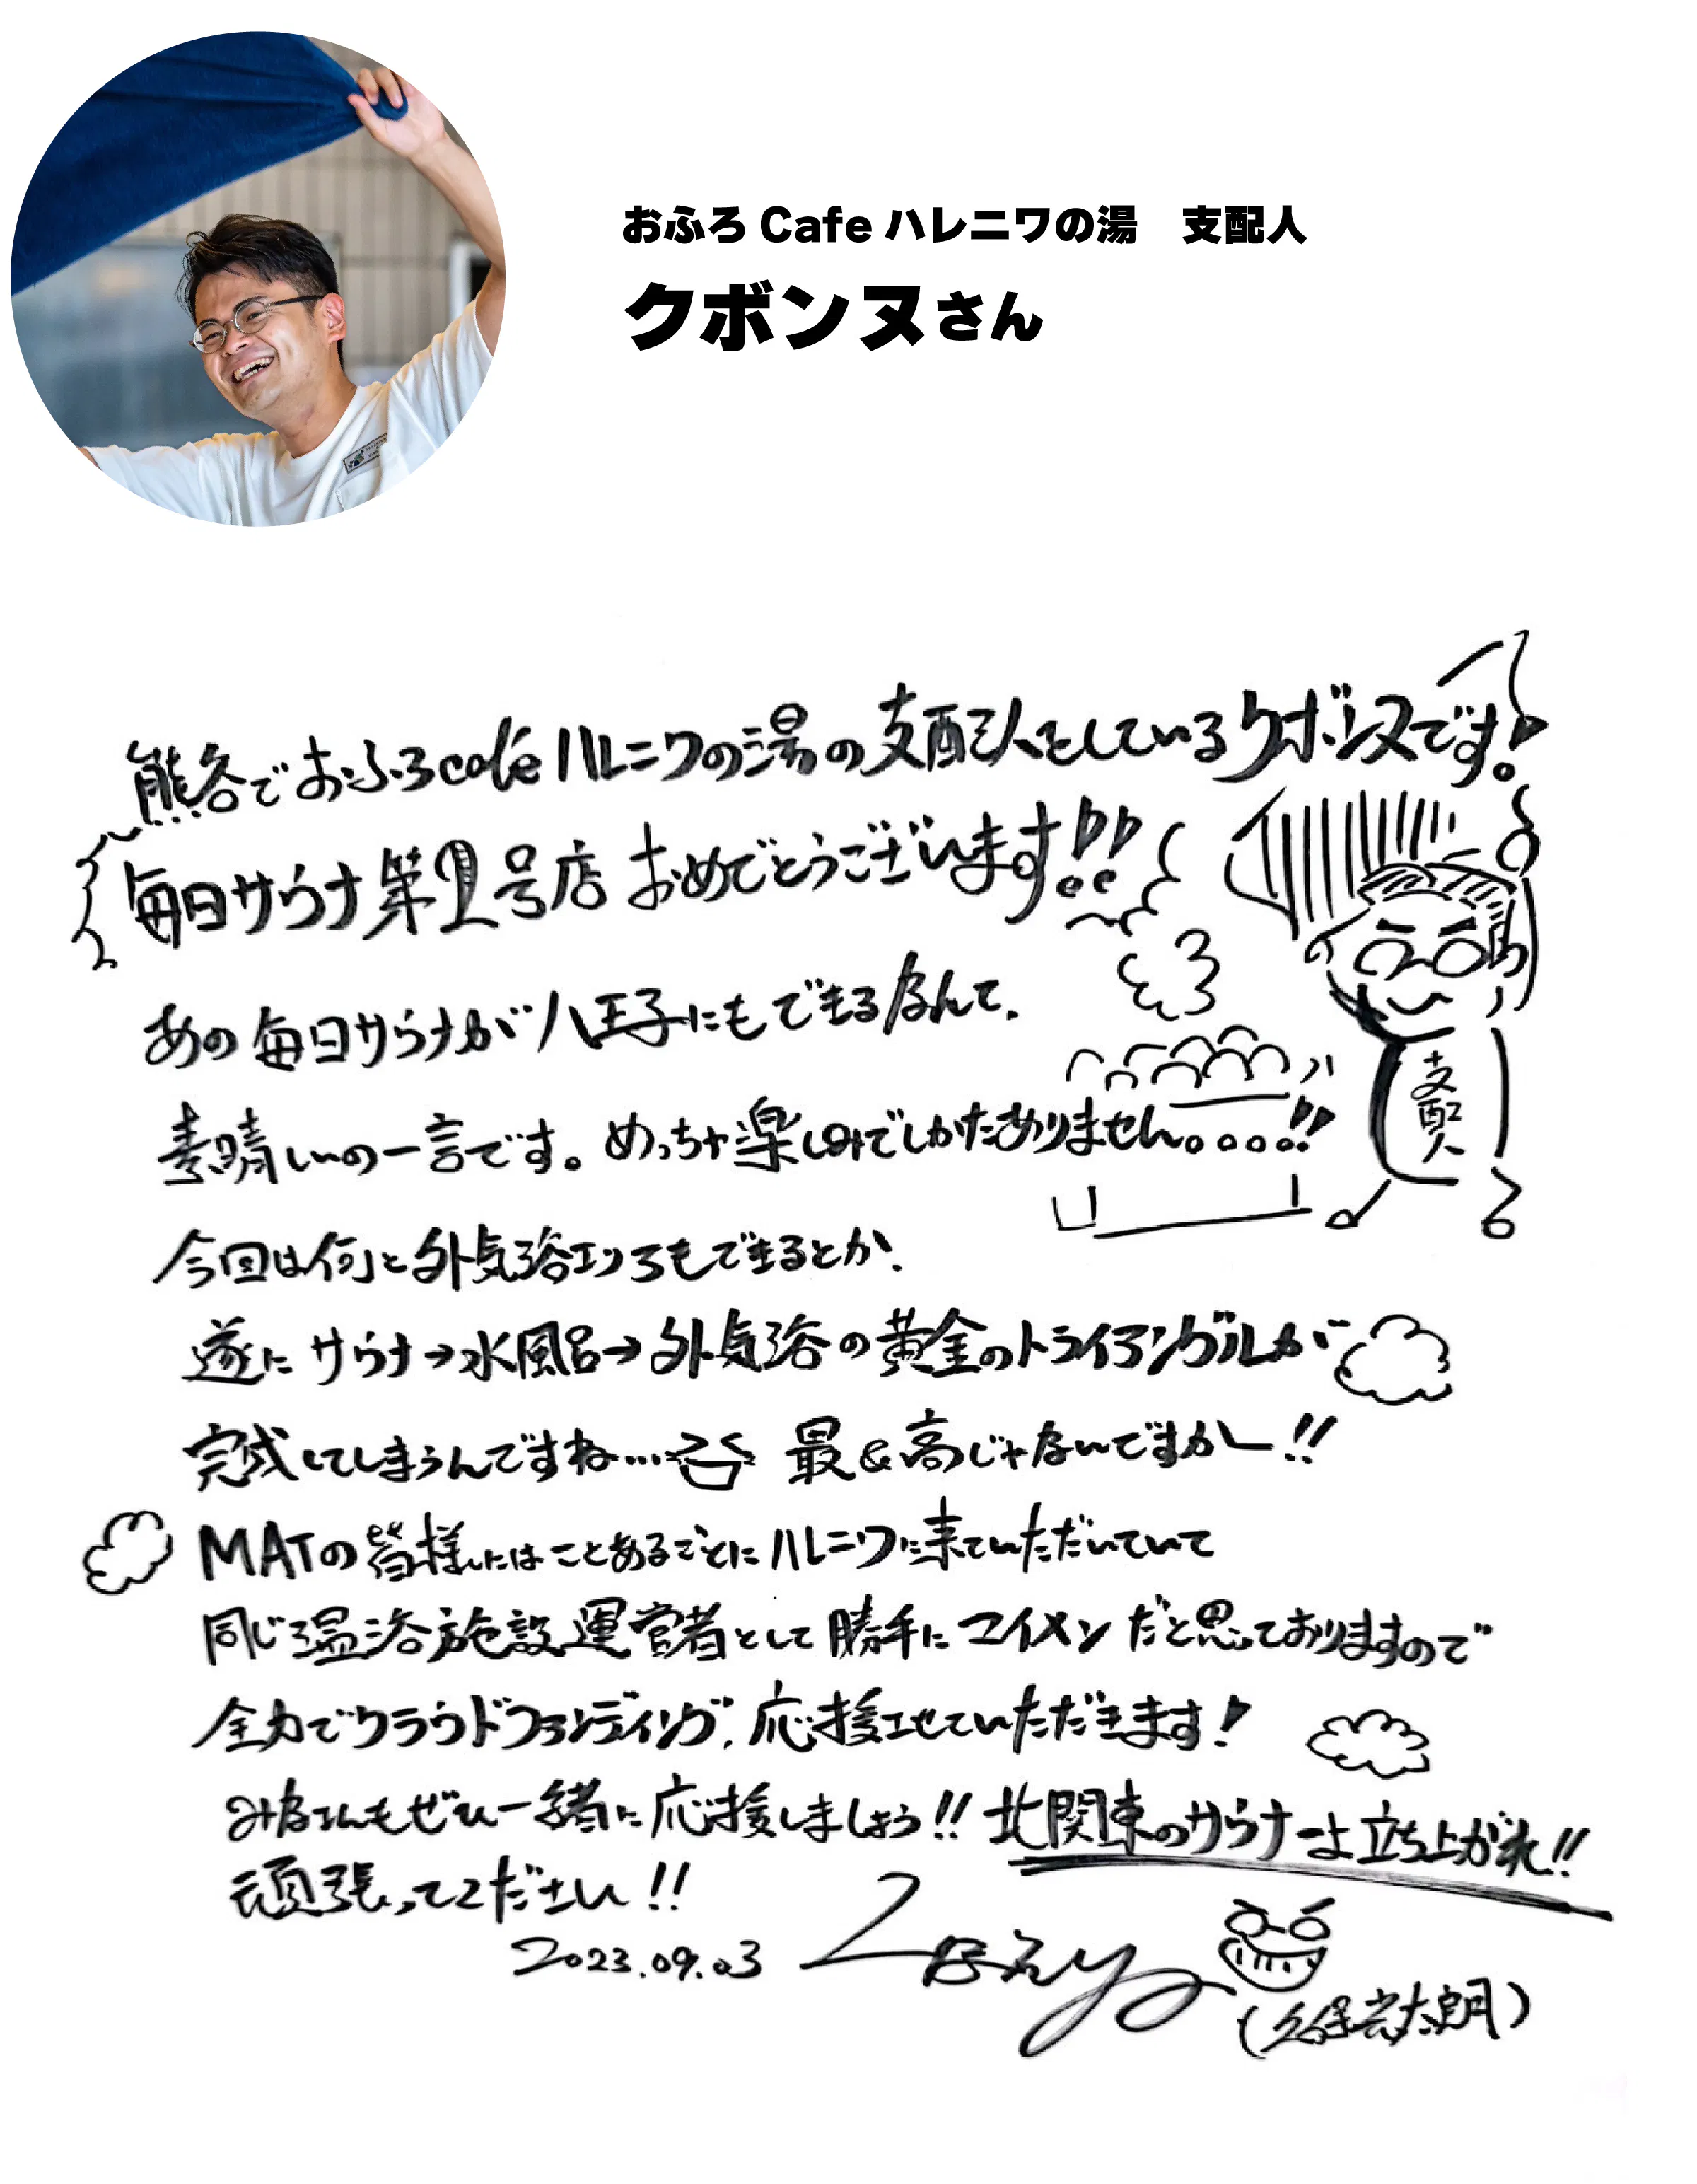 おふろCafeハレニワの湯　支配人
クボンヌさん
熊谷でおふろcaféハレニワの湯の支配人をしているクボンヌです!
毎日サウナ第2号店 おめでとうございます!!
あの毎日サウナが八王子にもできるなんて、
素晴しいの一言です。めっちゃ楽しみでしかたありません。。。。!!
支配人
今回は何と外気浴エリアもできるとか、
遂にサウナ→水風呂→外気浴の黄金のトライアングルが
完成してしまうんですね… 最&高じゃないですかー!!
MATの皆様にはことあるごとにハレニワに来ていただいていて
同じ温浴施設運営者として勝手にマイメンだと思っておりますので
全力でクラウドファンディング、応援させていただきます!
みなさんもぜひ一緒に応援しましょう!! 北関東のサウナーよ立ち上がれ!!
頑張ってください!!
2023.09.03